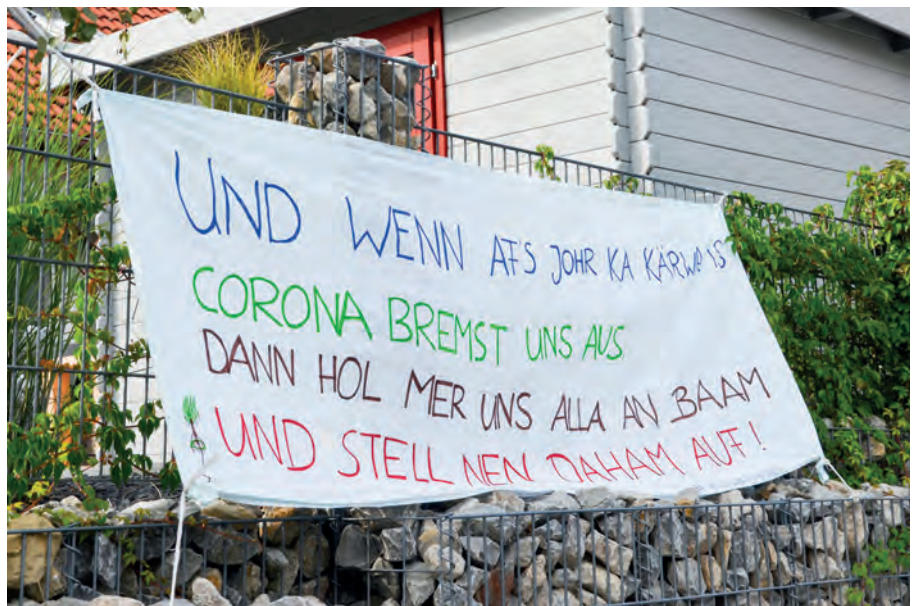 UND WENN AF'S JOHR KA KÄRWA IS
CORONA BREMST UNS AUS
DANN HOL MER UNS ALLA AN BAAM
UND STELL NEN DAHAM AUF!